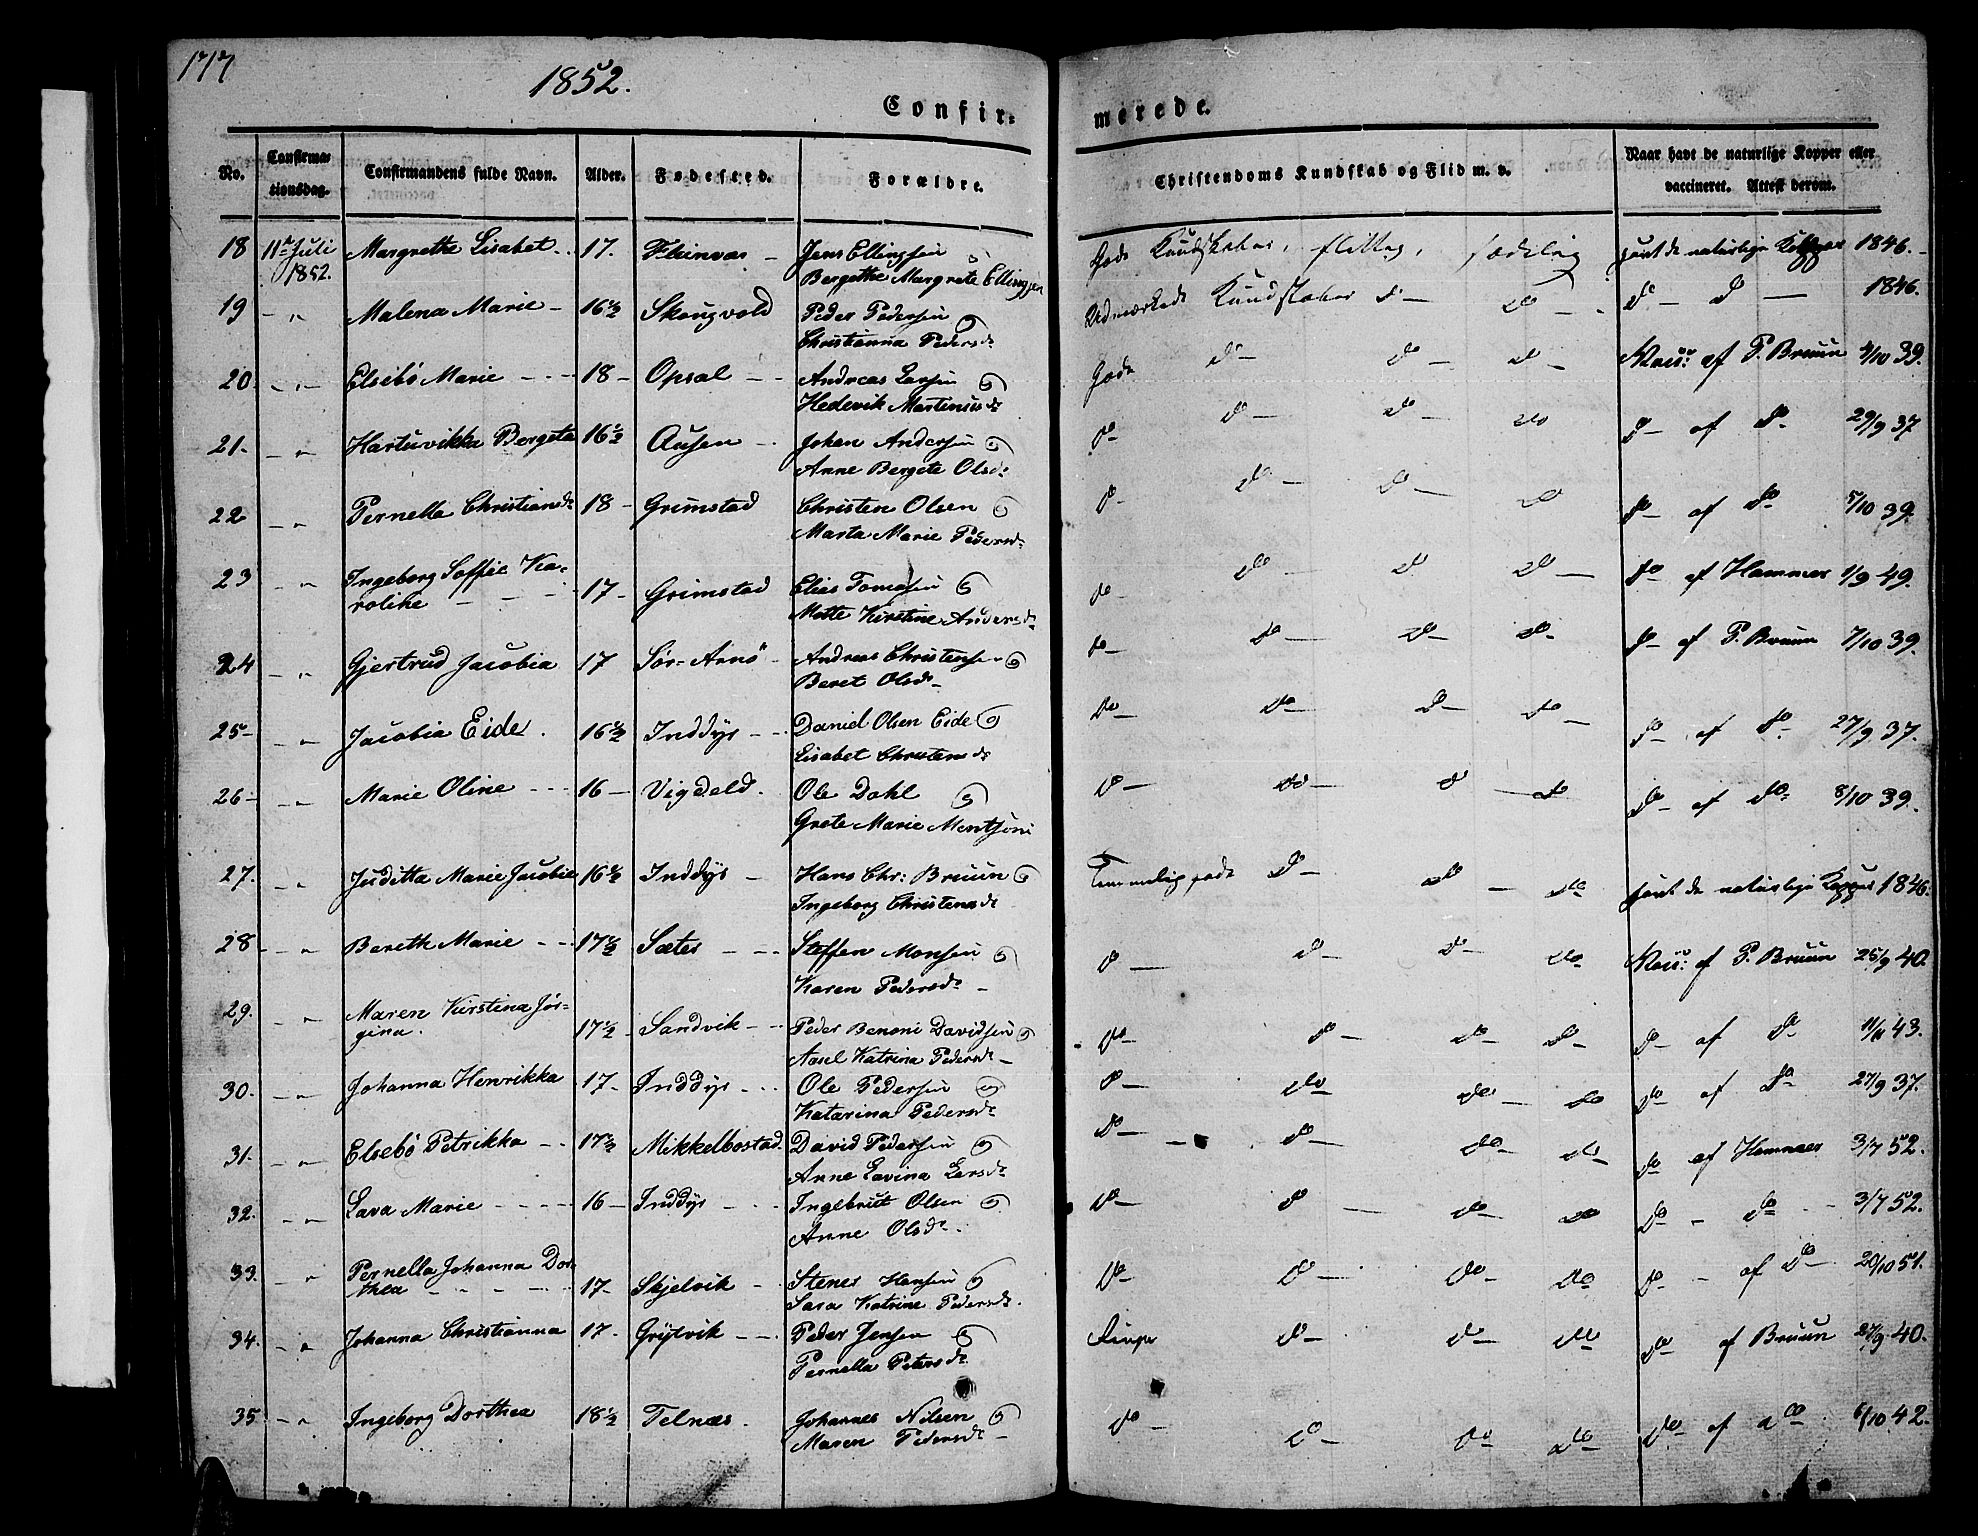 177
1852.
Confir=
merede.
No. Confirma-tionsdag. Confirmandens fulde Navn. Alder. Fødested. Forældre. Christendoms Kundskab og Flid m. v. Naar havt de naturlige Kopper eller vaccineret. Attest derom.
18 11te Juli Margrethe Lisabet 17. Fleinvær Jens Ellingsen Gode Kundskaber, flittig, sædelig havt de naturlige Kopper 1846.
1852. Bergithe Margrete Ellingsen
19 - " Malena Marie - 16½ Skougvold Peder Pedersen Udmærkede Kundskaber do - do - do - do - 1846.
Christianna Pedersdr
20. - " - Elsebö Marie - - - 18 - Opsal - - Andreas Larsen Gode do - do - do - Vacc: af P. Bruun 4/10 39.
Hedevik Martinusdr
21. - " Hartuvikka Bergeta 16½ Ausen - Johan Andersen do - do - do - do do - af do 29/9 37
Anne Bergete Olsdr
22 - " Pernella Christiansdr 18 - Grimstad Christen Olsen do - do - do - do do - af do 5/10 39.
Marta Marie Pedersdr
23 - " Ingeborg Soffie Ka-
roline - - - 17 - Grimstad Elias Tomasen do - do - do do - do af Hammer 1/9 49.
Mette Kirstine Andersdr
24 - " Gjertrud Jacobia 17 Sör-Arnö - Andreas Christensen do - do - do - do - do - af P. Bruun 7/10 39.
Beret Olsdr
25 - " Jacobia Eide. 16½ Inddyr - - Daniel Olsen Eide do - do - do - do - do - af do - 27/9 37.
Lisabet Christensdr
26 - - " Marie Oline - - - 16 - Vigdeld. Ole Dahl do - do - do - do do - af do 8/10 39.
Grete Marie Mentsoni
27. - " Juditta Marie Jacobie 16½ Inddyr - Hans Chr: Bruun Temmelig gode do - do - do havt de naturlige Kopper 1846.
Ingeborg Christensdr
28 - " Bereth Marie - - - 17½ Sæter - - - Steffen Monsen do - do - do - do Vacc: af P. Bruun 25/9 40.
Karen Pedersdr -
29. - " Maren Kirstina Jör-
gina. 17½ - Sandvik - - Peder Benoni Davidsen do - do - do - do - do - af do 11/11 43.
Assel Katrina Pedersdr -
30. - " Johanna Henrikka 17 - Inddyr - - - Ole Pedersen do - do do - do do af do 27/9 37.
Katarina Pedersdr
31. - " Elsebö Petrikka - - 17½ Mikkelbostad. David Pedersen do - do - do - do - do af Hammer 3/7 52.
Anne Lavina Larsdr
32. - " Lava Marie - - - - - 16 - Inddyr - - - Ingebrict Olsen do - do - do - do do - do - - 3/7 52.
Anne Olsdr.
33. - " Pernella Johanna Dor-
thea - - - - 17 - Skjelvik - Stener Hansen do - do - do - do do - af do - 20/10 51.
Sara Katrine Pedersdr.
34. - " Johanna Christianna 17. Grytvik - - Peder Jensen Ringe do - do - do do af Bruun 27/9 40.
Pernella Petersdr
35 - " Ingeborg Dorthea 18½ Telnæs. Johannes Nilsen do - do - do do - do af do 6/10 42.
Maren Pedersdr -